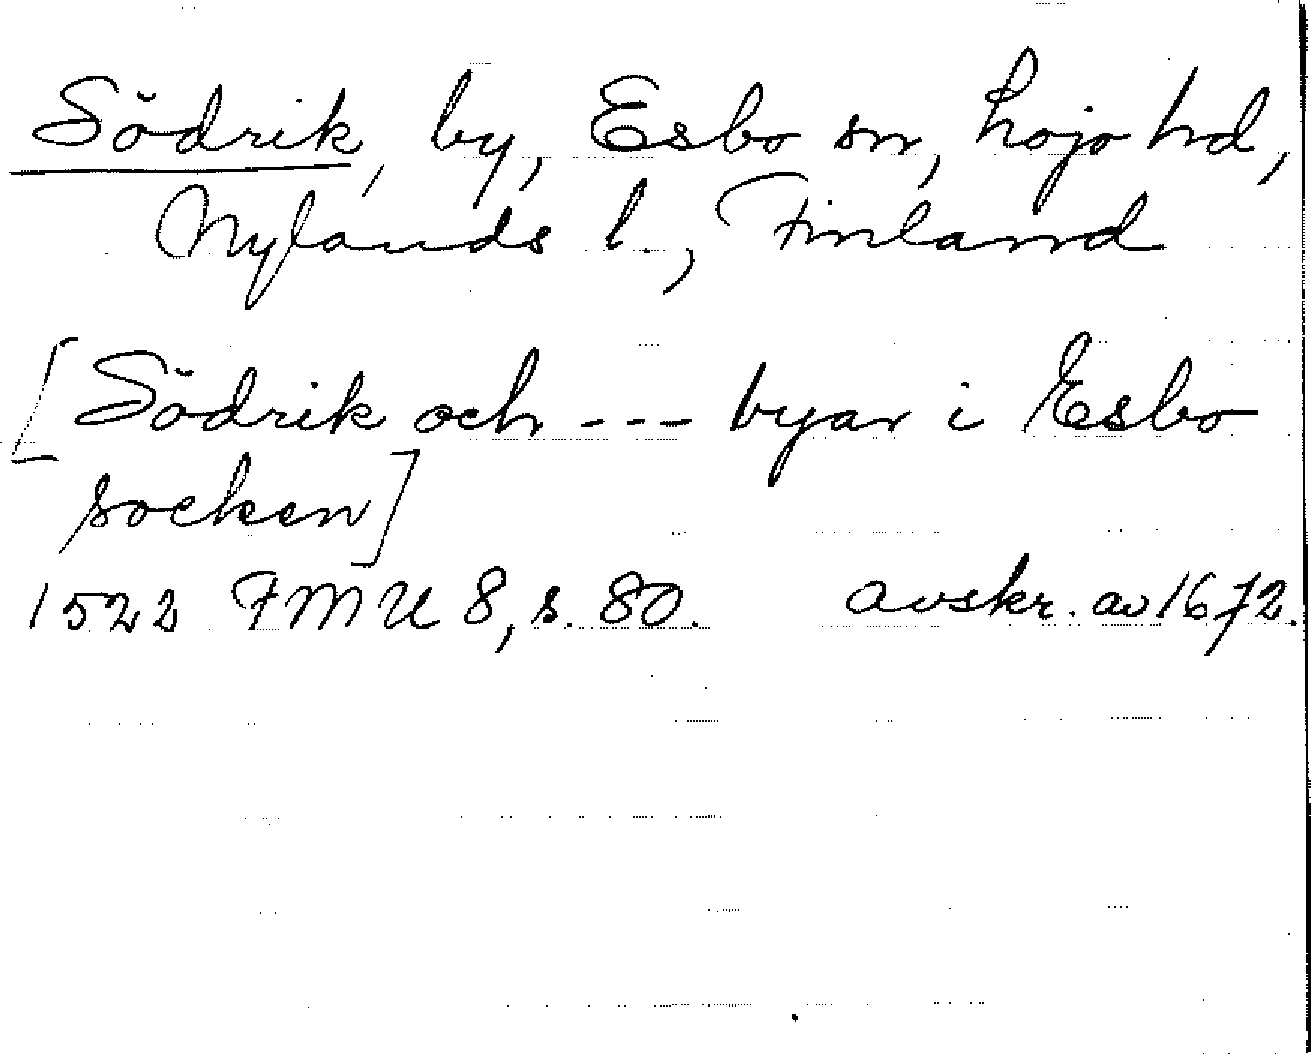 Södrik, by, Esbo sn, Lojo hd,
Nylands l., Finland
[Södrik och --- byar i Esbo
socken]
1522 FMU 8, s. 80. avskr. av 1672.